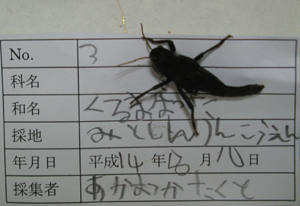 No. 3
科名
和名 くるまばった
採地 みとしんりんこうえん
年月日 平成14年10月10日
採集者 あかおつかたくと